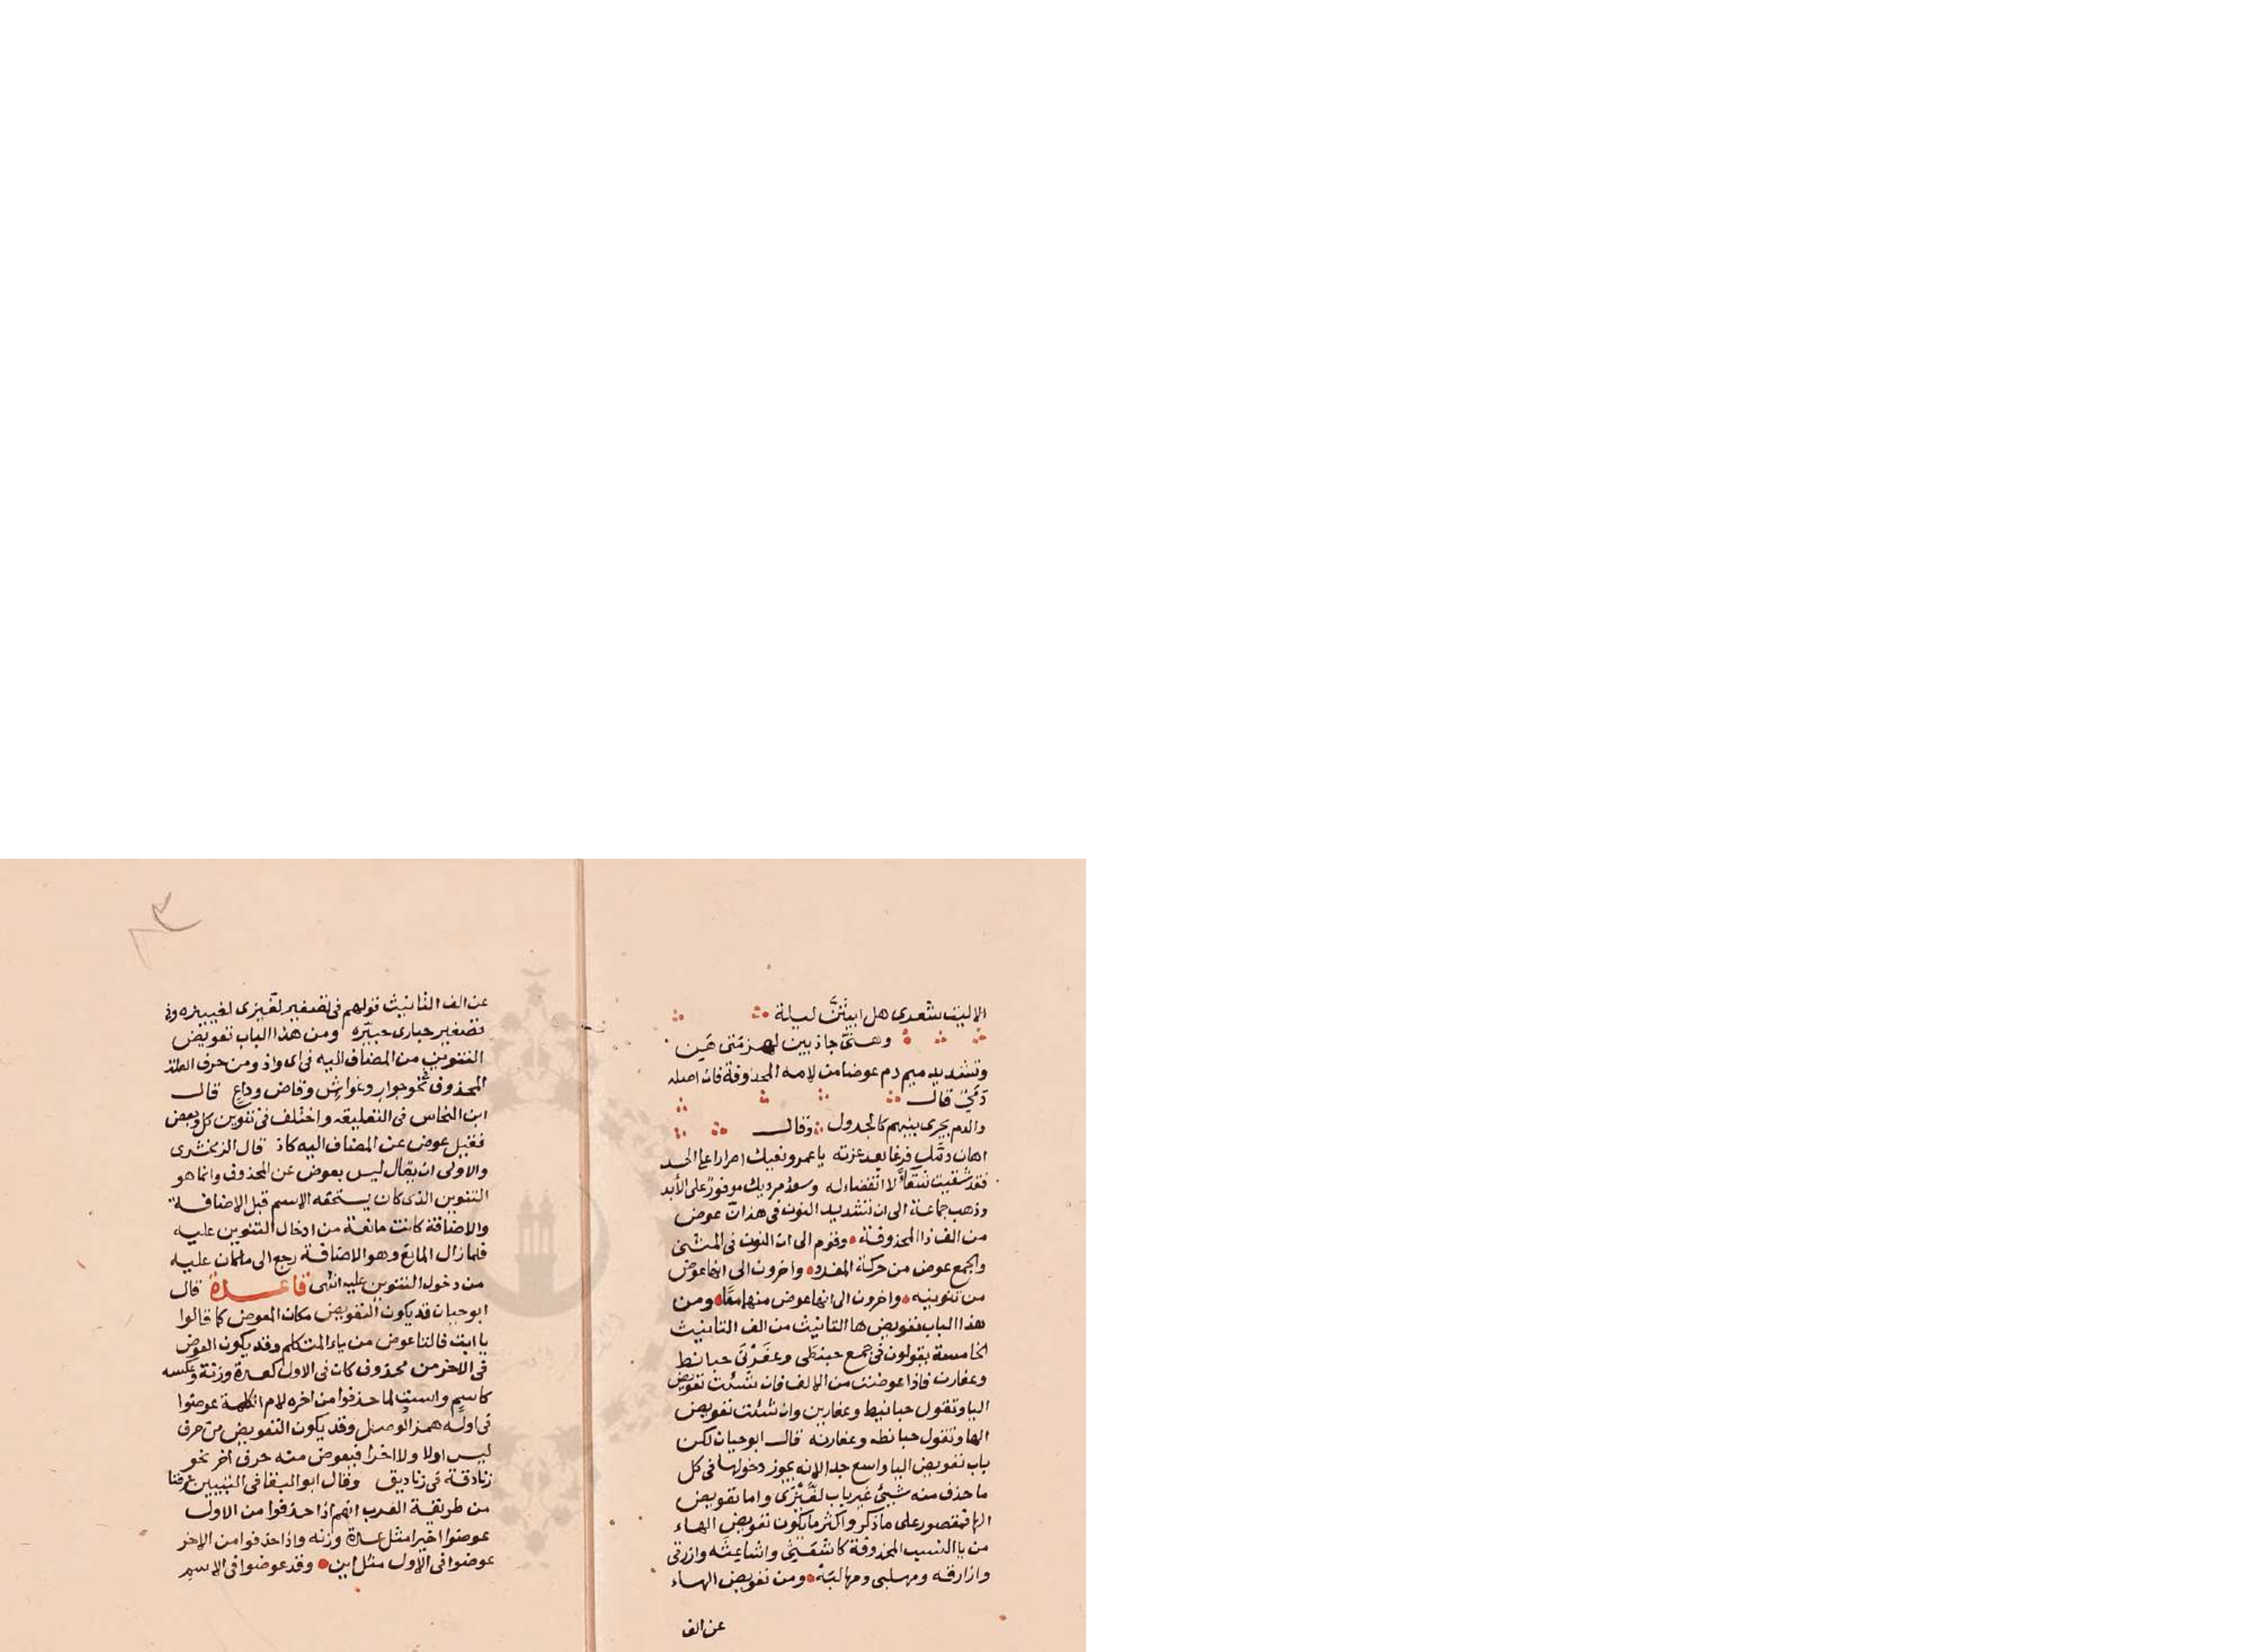 الا ليت شعرى هل ابيتنّ ليلة
وهنّى جاذ بين لهزمتى هن
وتشديد ميم دم عوضا من لامه المحذوفة فان اصله
دَمَىٌ قال
والدم يجرى بينهم كالجدول وقال
اهان دمّك فرغا بعد عزته يا عمرو نغيك اصرارا على الحسد
فقد شقيت شقاءً لا انقضاء له وسعد مرديك موفور على الأبد
وذهب جماعة الى ان تشديد النون فى هذانّ عوض
من الف ذا المحذوفة وقوم الى ان النون فى المثنى
والجمع عوض من حركة المفرد واخرون الى انها عوض
من تنوينه واخرون الى انها عوض منهما معًا ومن
هذا الباب تعويض ها التانيث من الف التانيث
الخامسة يقولون فى جمع حبنطى وعفرنى حبانط
وعفارن فاذا عوضت من الالف فان شئت تعويض
اليا وتقول حبانيط وعفارين وان شئت تعويض
الها وتقول حبانطه وعفارنه قال ابو حيان لكن
باب تعويض اليا واسع جدا لانه يجوز دخولها فى كل
ما حذف منه شيئ غير باب لغّيزى واما تعويض
الها فمقصور على ما ذكر واكثر ما يكون تعويض الهاء
من يا النسب المحذوفة كاشعثى واشاعثه وازرقى
وازارقه ومهلبى ومهالبة ومن تعويض الهاء
عن الف
عن الف التانيث قولهم فى تصغير لغّيزى لغيبيزه وفى
تصغير حبارى حبيّره ومن هذا الباب تعويض
التنوين من المضاف اليه فى اى واذ ومن حرف العلة
المحذوف فى نحو جوار وغواش وقاض وداع قال
ابن النحاس فى التعليقه واختلف فى تنوين كل وبعض
فقيل عوض عن المضاف اليه كاذ قال الزمخشرى
والاولى ان يقال ليس بعوض عن المحذوف وانما هو
التنوين الذى كان يستحقه الاسم قبل الاضافة
والاضافة كانت مانعة من ادخال التنوين عليه
فلما زال المانع وهو الاضافة رجع الى ما كان عليه
من دخول التنوين عليه انتهى قاعدة قال
ابو حيان قد يكون التعويض مكان المعوض كما قالوا
يا ابت فالتا عوض من ياء المتكلم وقد يكون العوض
فى الاخر من محذوف كان فى الاول كعدة وزنة وعكسه
كاسم واست لما حذفوا من اخره لام الكلمة عوضوا
فى اوله همز الوصل وقد يكون التعويض من حرف
ليس اولا ولا اخرا فيعوض منه حرف اخر نحو
زنادقة فى زناديق وقال ابو البقا فى التبيين عرفنا
من طريقة العرب انهم اذا حذفوا من الاول
عوضوا اخيرا مثل عدة وزنه واذا حذفوا من الاخر
عوضوا فى الاول مثل ابن وقد عوضوا فى الاسم